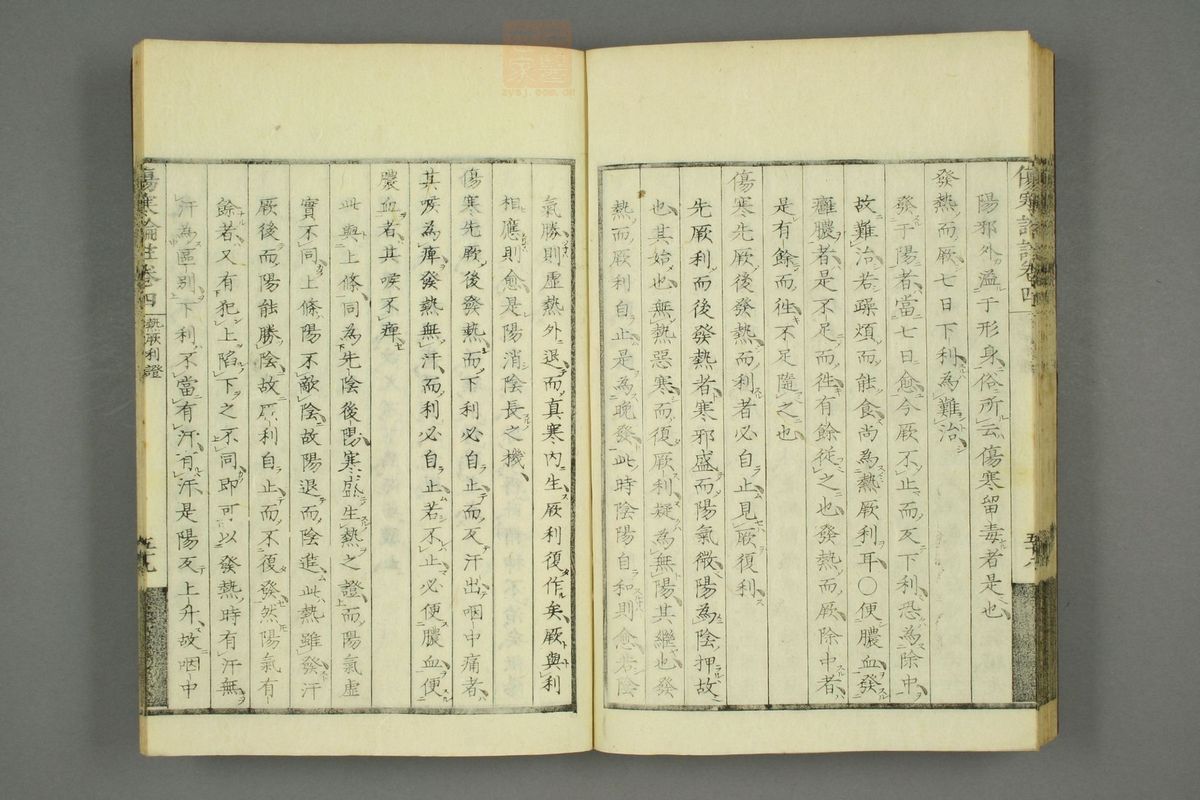 陽邪外溢于形身俗所云傷寒留毒者是也
發熱而厥七日下利為難治
發于陽者當七日愈今厥不止而反下利恐為除中
故難治若躁煩而能食尚為熱厥利耳○便膿血發
癰膿者是不足而徃有餘從之也發熱而厥除中者
是有餘而徃不足隨之也
傷寒先厥後發熱而利者必自止見厥復利
先厥利而後發熱者寒邪盛而陽氣微陽為陰押故
也其始也無熱惡寒而復厥利疑為無陽其繼也發
熱而厥利自止是為晚發此時陰陽自和則愈若陰
氣勝則虛熱外退而真寒內生厥利復作矣厥與利
相應則愈是陽消陰長之機
傷寒先厥後發熱而下利必自止而反汗出咽中痛者
其喉為痺發熱無汗而利必自止若不止必便膿血便
膿血者其喉不痺
此與上條同為先陰後陽寒盛生熱之證而陽氣虛
實不同上條陽不敵陰故陽退而陰進此熱雖發汗
厥後而陽能勝陰故厥利自止而不復發然陽氣有
餘者又有犯上陷下之不同即可以發熱時有汗無
汗為區別下利不當有汗有汗是陽反上升故咽中
傷寒論註卷四
熱厥利證
五十九